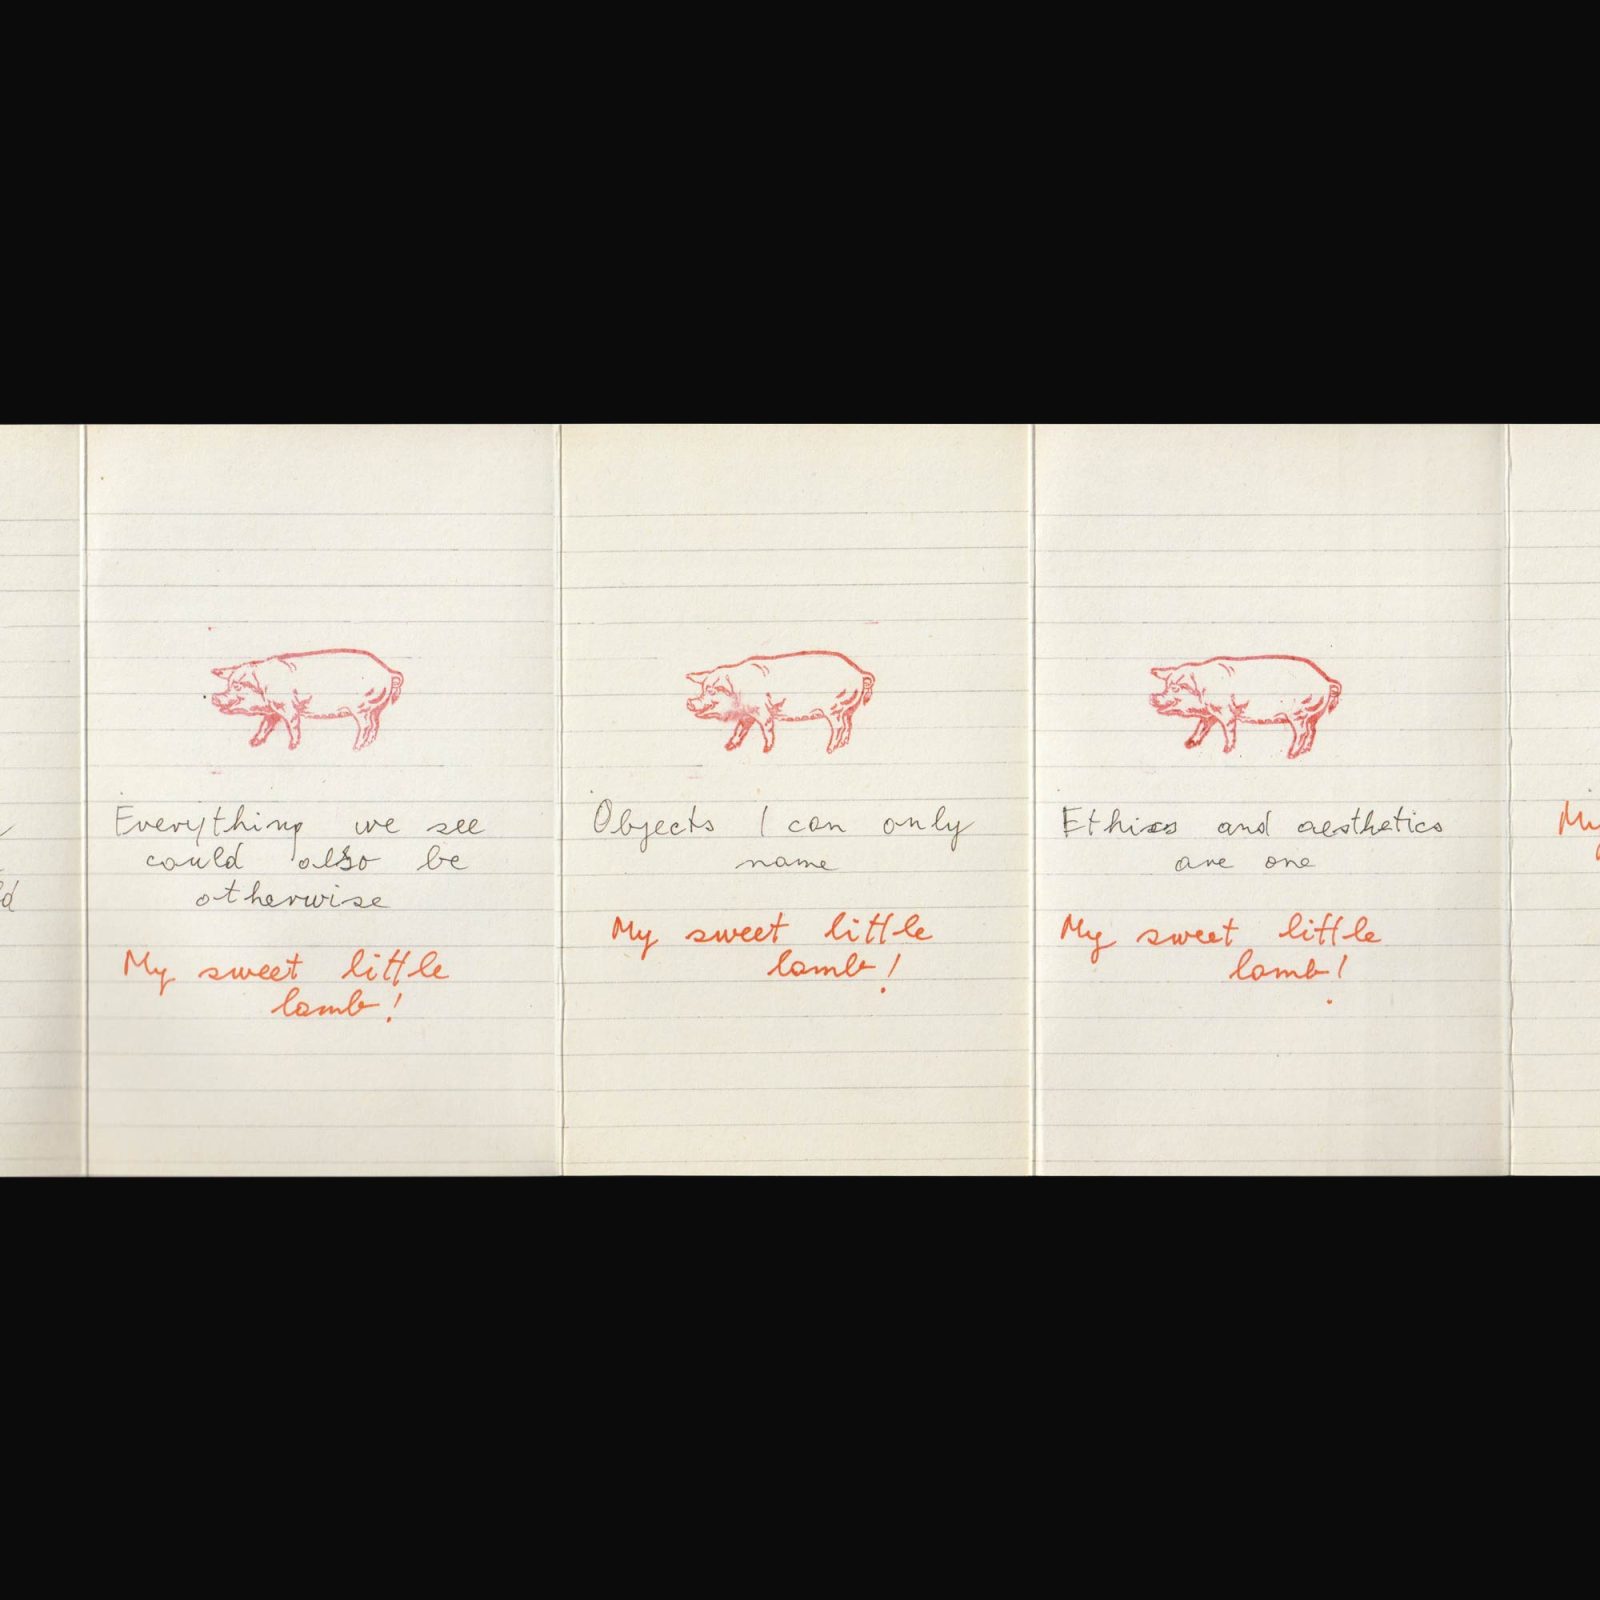 Everything we see
could also be
otherwise
My sweet little
lamb!
Objects I can only
name
My sweet little
lamb!
Ethics and aesthetics
are one
My sweet little
lamb!
My